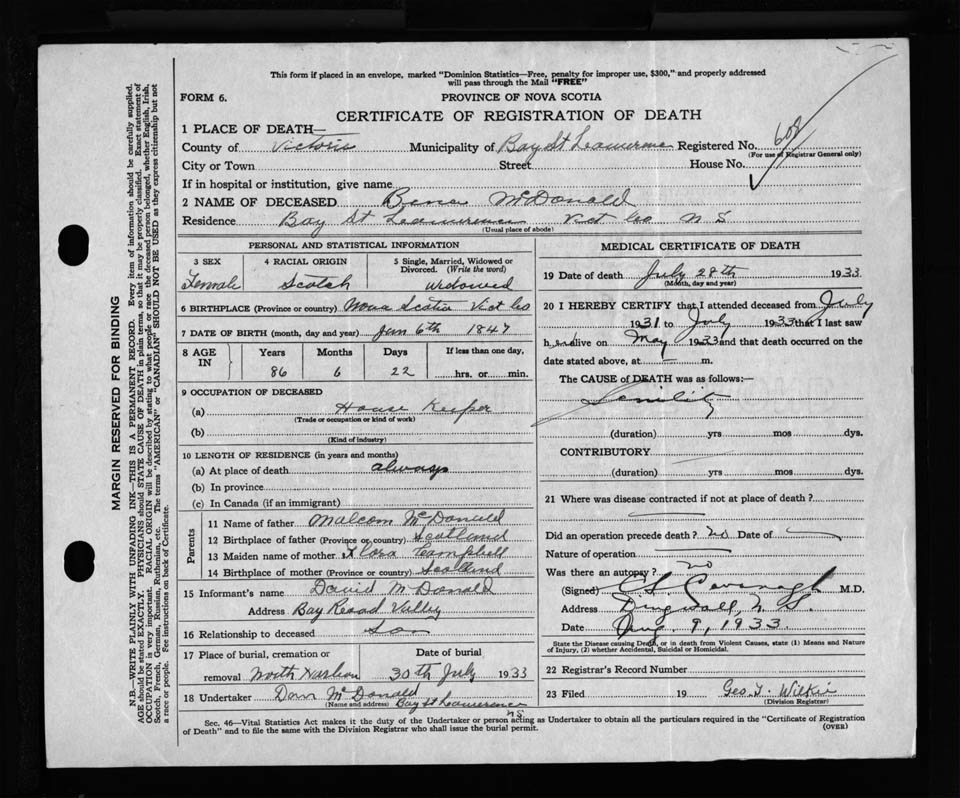 This form if placed in an envelope, marked "Dominion Statistics—Free, penalty for improper use, $300," and properly addressed
will pass through the Mail "FREE"
FORM 6.
PROVINCE OF NOVA SCOTIA
CERTIFICATE OF REGISTRATION OF DEATH
1 PLACE OF DEATH—
County of Victoria Municipality of Bay St Lawrence Registered No. 608
(For use of Registrar General only)
City or Town Street House No.
If in hospital or institution, give name
2 NAME OF DECEASED McDonald
Residence Bay St Lawrence Vict Co N S
(Usual place of abode)
PERSONAL AND STATISTICAL INFORMATION
3 SEX 4 RACIAL ORIGIN 5 Single, Married, Widowed or
Divorced. (Write the word)
Female Scotch widowed
6 BIRTHPLACE (Province or country) Nova Scotia Vict Co
7 DATE OF BIRTH (month, day and year) Jan 6th 1847
8 AGE IN Years Months Days If less than one day,
86 6 22 hrs. or min.
9 OCCUPATION OF DECEASED
(a) House Keeper
(Trade or occupation or kind of work)
(b)
(Kind of industry)
10 LENGTH OF RESIDENCE (in years and months)
(a) At place of death always
(b) In province
(c) In Canada (if an immigrant)
Parents
11 Name of father Malcom McDonald
12 Birthplace of father (Province or country) Scotland
13 Maiden name of mother Flora Campbell
14 Birthplace of mother (Province or country) Scotland
15 Informant's name David McDonald
Address Bay Road Valley
16 Relationship to deceased Son
17 Place of burial, cremation or Date of burial
removal North Harbour 30th July 1933
18 Undertaker Dan McDonald
(Name and address) Bay St Lawrence
NS
MEDICAL CERTIFICATE OF DEATH
19 Date of death July 28th 1933
(Month, day and year)
20 I HEREBY CERTIFY that I attended deceased from July
1931 to July 1933 that I last saw
her alive on May 1933 and that death occurred on the
date stated above, at — m.
The CAUSE of DEATH was as follows:—
Senility
(duration) yrs mos dys.
CONTRIBUTORY
(duration) yrs mos dys.
21 Where was disease contracted if not at place of death?
Did an operation precede death? no Date of
Nature of operation
Was there an autopsy? no
(Signed) Cavanagh M.D.
Address Dingwall, N. S.
Date Aug. 9, 1933.
State the Disease causing Death, or in death from Violent Causes, state (1) Means and Nature
of Injury, (2) whether Accidental, Suicidal or Homicidal.
22 Registrar's Record Number
23 Filed 19 Geo. T. Wilkie
(Division Registrar)
Sec. 46—Vital Statistics Act makes it the duty of the Undertaker or person acting as Undertaker to obtain all the particulars required in the "Certificate of Registration
of Death" and to file the same with the Division Registrar who shall issue the burial permit.
(OVER)
MARGIN RESERVED FOR BINDING
N.B.—WRITE PLAINLY WITH UNFADING INK—THIS IS A PERMANENT RECORD. Every item of information should be carefully supplied.
AGE should be stated EXACTLY. PHYSICIANS should STATE CAUSE OF DEATH in plain terms, so that it may be properly classified. Exact statement of
OCCUPATION is very important. RACIAL ORIGIN will be described by stating to what people or race the deceased person belonged, whether English, Irish,
Scotch, French, German, Russian, Ruthenian, etc. The terms "AMERICAN" or "CANADIAN" SHOULD NOT BE USED as they express citizenship but not
a race or people. See instructions on back of Certificate.